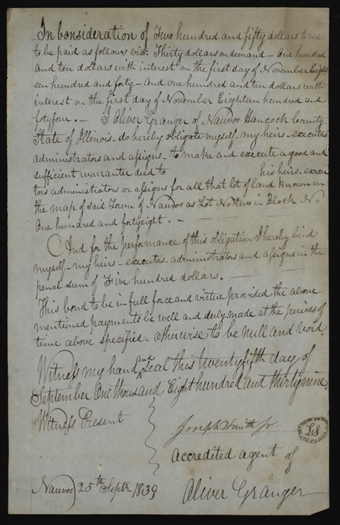 In Consideration of Two hundred and fifty dollars to me
to be paid as follows viz: Thirty dollars on demand - One hundred
and ten dollars with interest on the first day of November Eight
een hundred and forty - And one hundred and ten dollars with
interest on the first day of November Eighteen hundred and
forty four. - I Oliver Granger of Nauvoo Hancock County
State of Illinois - do hereby obligate myself, my heirs - executors
administrators and assigns - to make and execute a good and
sufficient warrantee deed to his heirs. execu
tors administrators or assigns for all that lot of land known on
the map of said Town of Nauvoo as Lot No three in Block No
One hundred and forty eight. -
And for the performance of this obligation I hereby bind
myself - my heirs - executors. administrators and assigns in the
penal sum of Five hundred dollars.
This bond to be in full force and virtue provided the above
mentioned payments be well and duly made at the periods of
time above specified. otherwise to be null and void
Witness my hand and seal this twenty fifth day of
September One thousand Eight hundred and thirty nine.
Witness Present
Joseph Smith Jr
LS
Accredited agent of
Nauvoo 25th Septr 1839
Oliver Granger